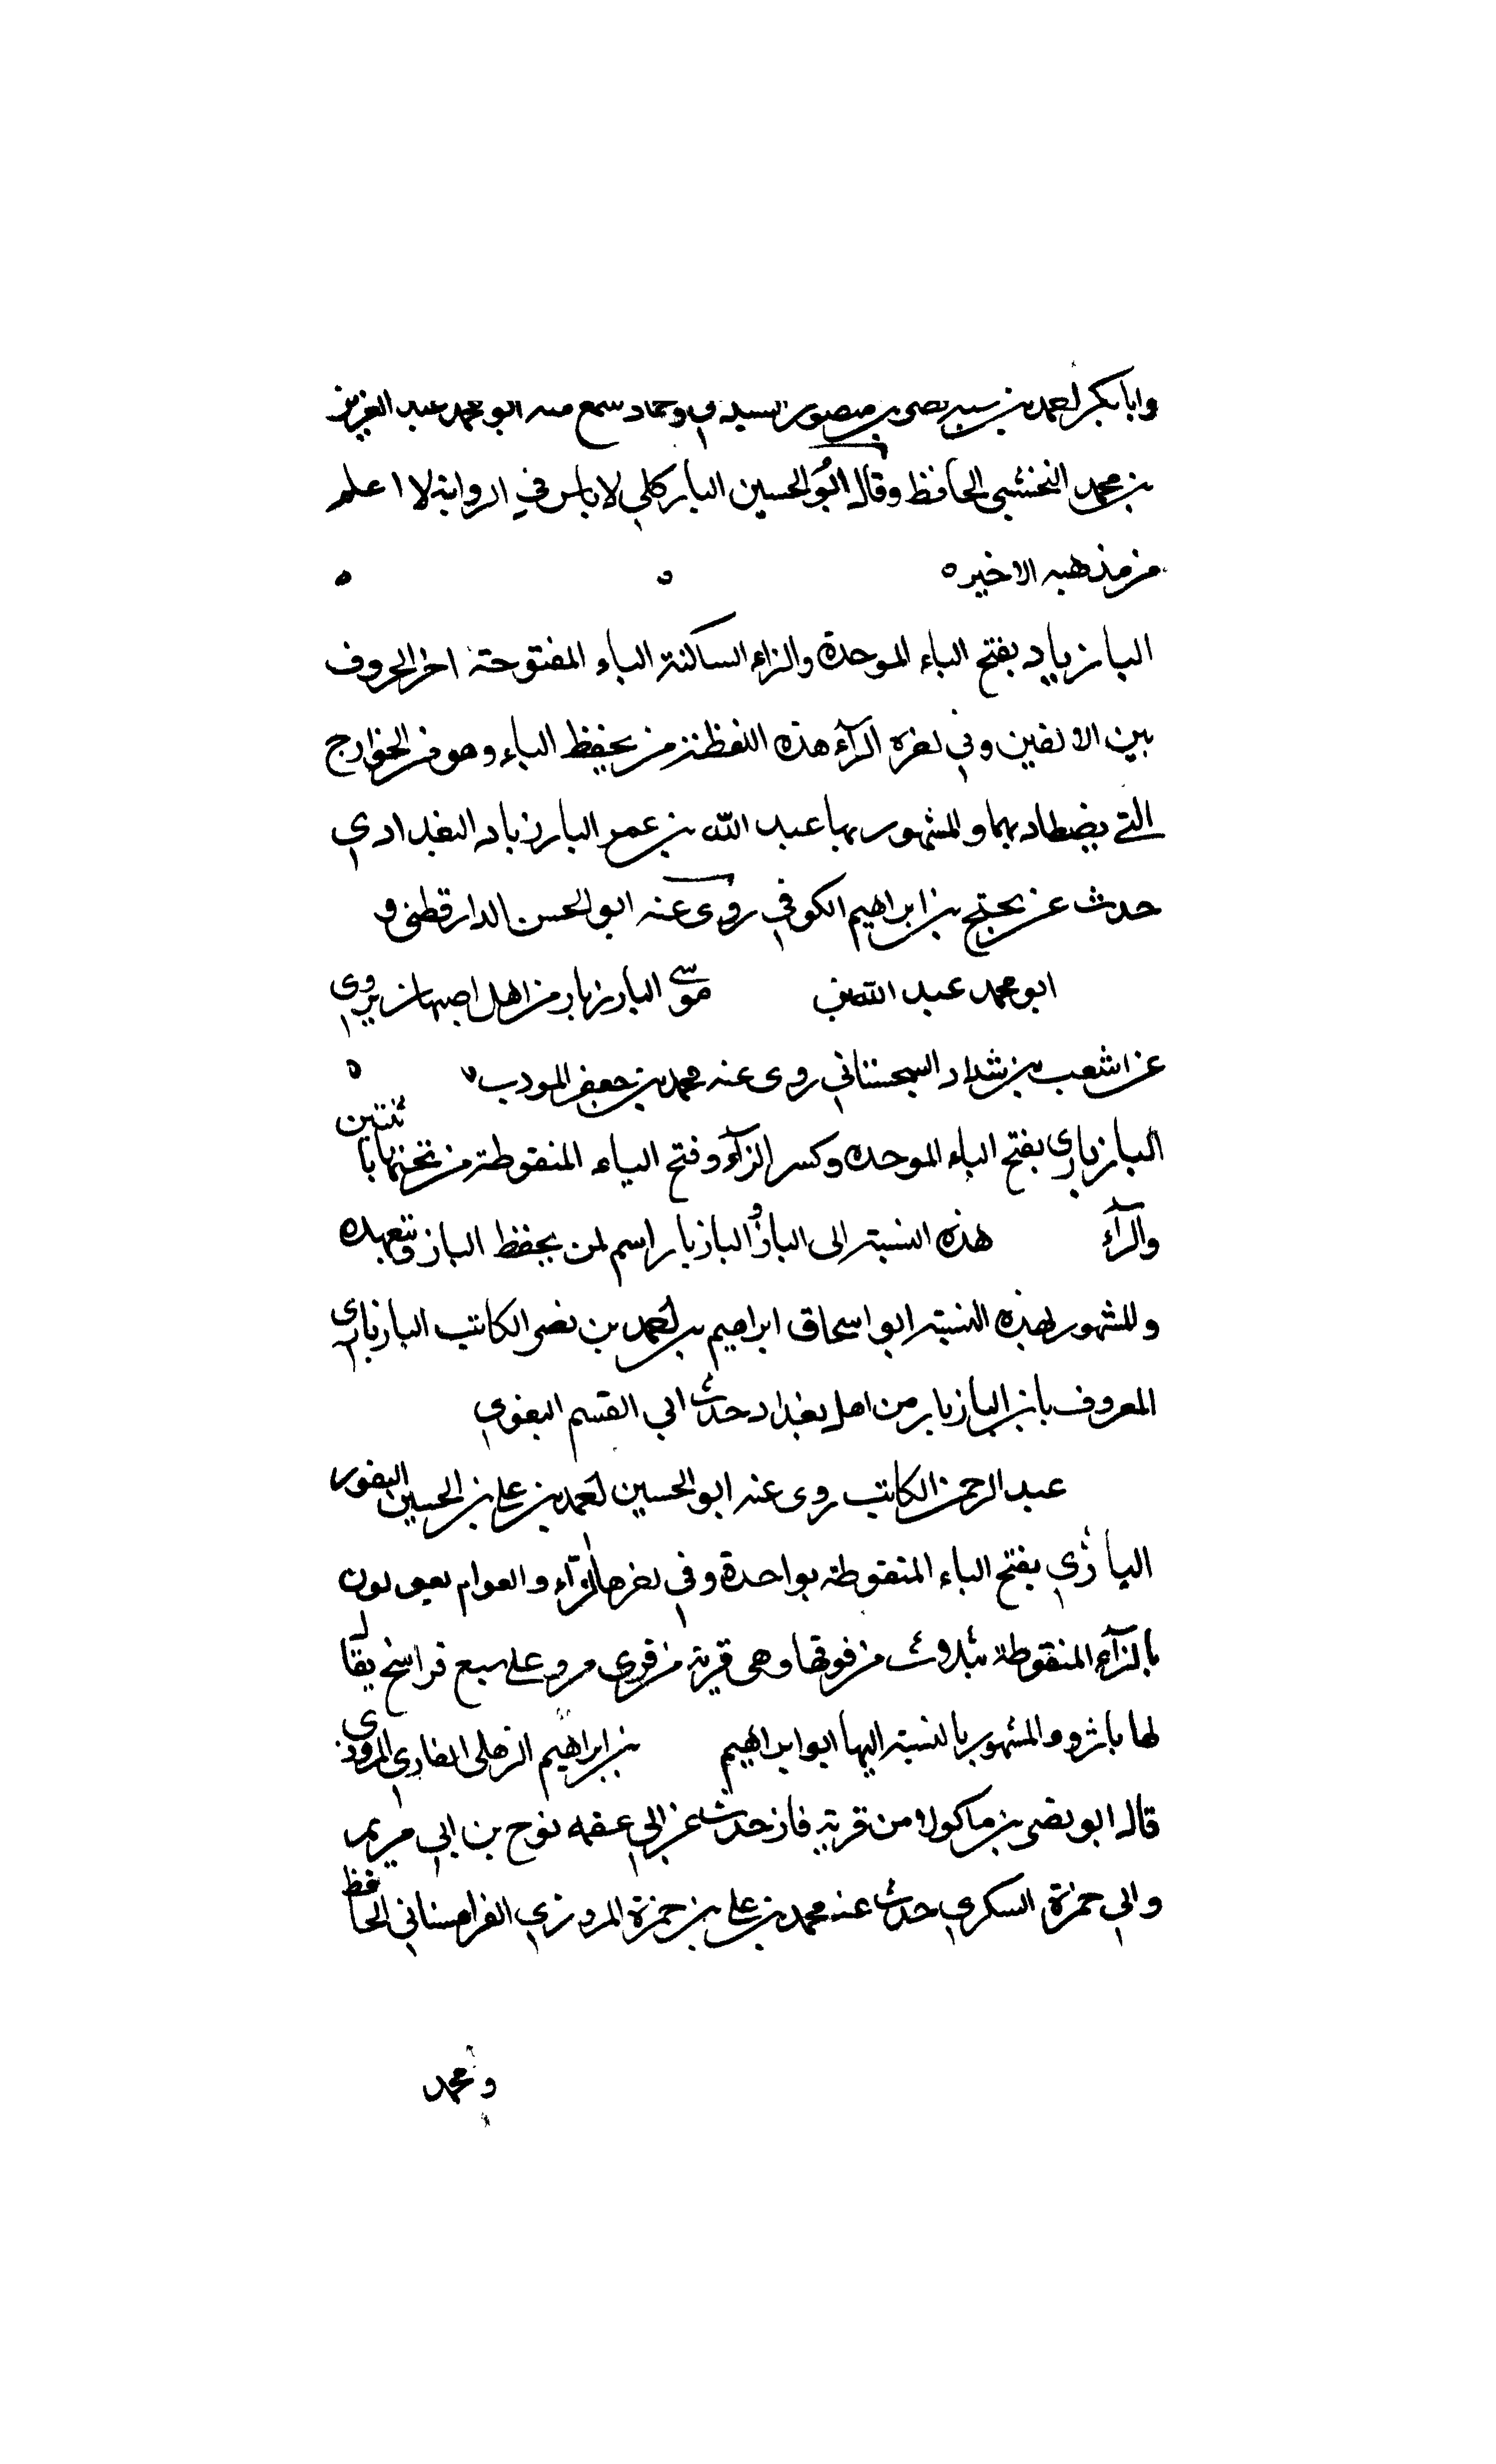 وابا بكر احمد بن سهر نصر بن منصور وحماد سمع منه ابو محمد عبد العزيز
بن محمد النخشبي الحافظ وقال ابو الحسين الباركلي لا باس في الرواية لا اعلم
من مذهبه الاخير ه
البازياد بفتح الباء الموحدة والزاء الساكنة الياء المفتوحة اخر الحروف
بين الالفين وفي اخره الرآء هذه اللفظة من يحفظ الباء وهو من الخوارج
التي يصطاد بهما والمشهور بها عبد الله بن عمر البارزباد البغدادي
حدث عن يحتج بن ابراهيم الكوفي روى عنه ابو الحسن الدارقطني و
ابو محمد عبد الله بن موسى البارزبار من اهل اصبهان يروى
عن اشعب بن شداد السجستاني روى عنه محمد بن جعفر المودب ه
البازياري بفتح الباء الموحده وكسر الزآء وفتح الياء المنقوطة من تحتها باثنتين
والرآء هذه النسبة الى الباز والبازيار اسم لمن يحفظ الباز ويتعهده
والمشهور بهذه النسبة ابو اسحاق ابراهيم بن احمد بن نصر الكاتب البازياري
المعروف بابن البازيار من اهل بغداد حدث ابي القسم البغوي
عبد الرحمن الكاتب روى عنه ابو الحسين احمد بن علي بن الحسين التفور
الباژي بفتح الباء المنقوطة بواحدة وفي اخرها الزآء والعوام يقولون
بالزآء المنقوطة بثلاث من فوقها وهي قرية من قرى مرو على سبع فراسخ يقال
لها باژ و والمشهور بالنسبة اليها ابو ابراهيم بن ابراهيم الذهلي المروذي
قال ابو نصر بن ماكولا من قرية فاز حدث عن ابي عصمه نوح بن ابي مريم
وابي حمزة السكري حدث عنه محمد بن علي بن حمزة المروزي الفراهيناني الحافظ
ومحمد